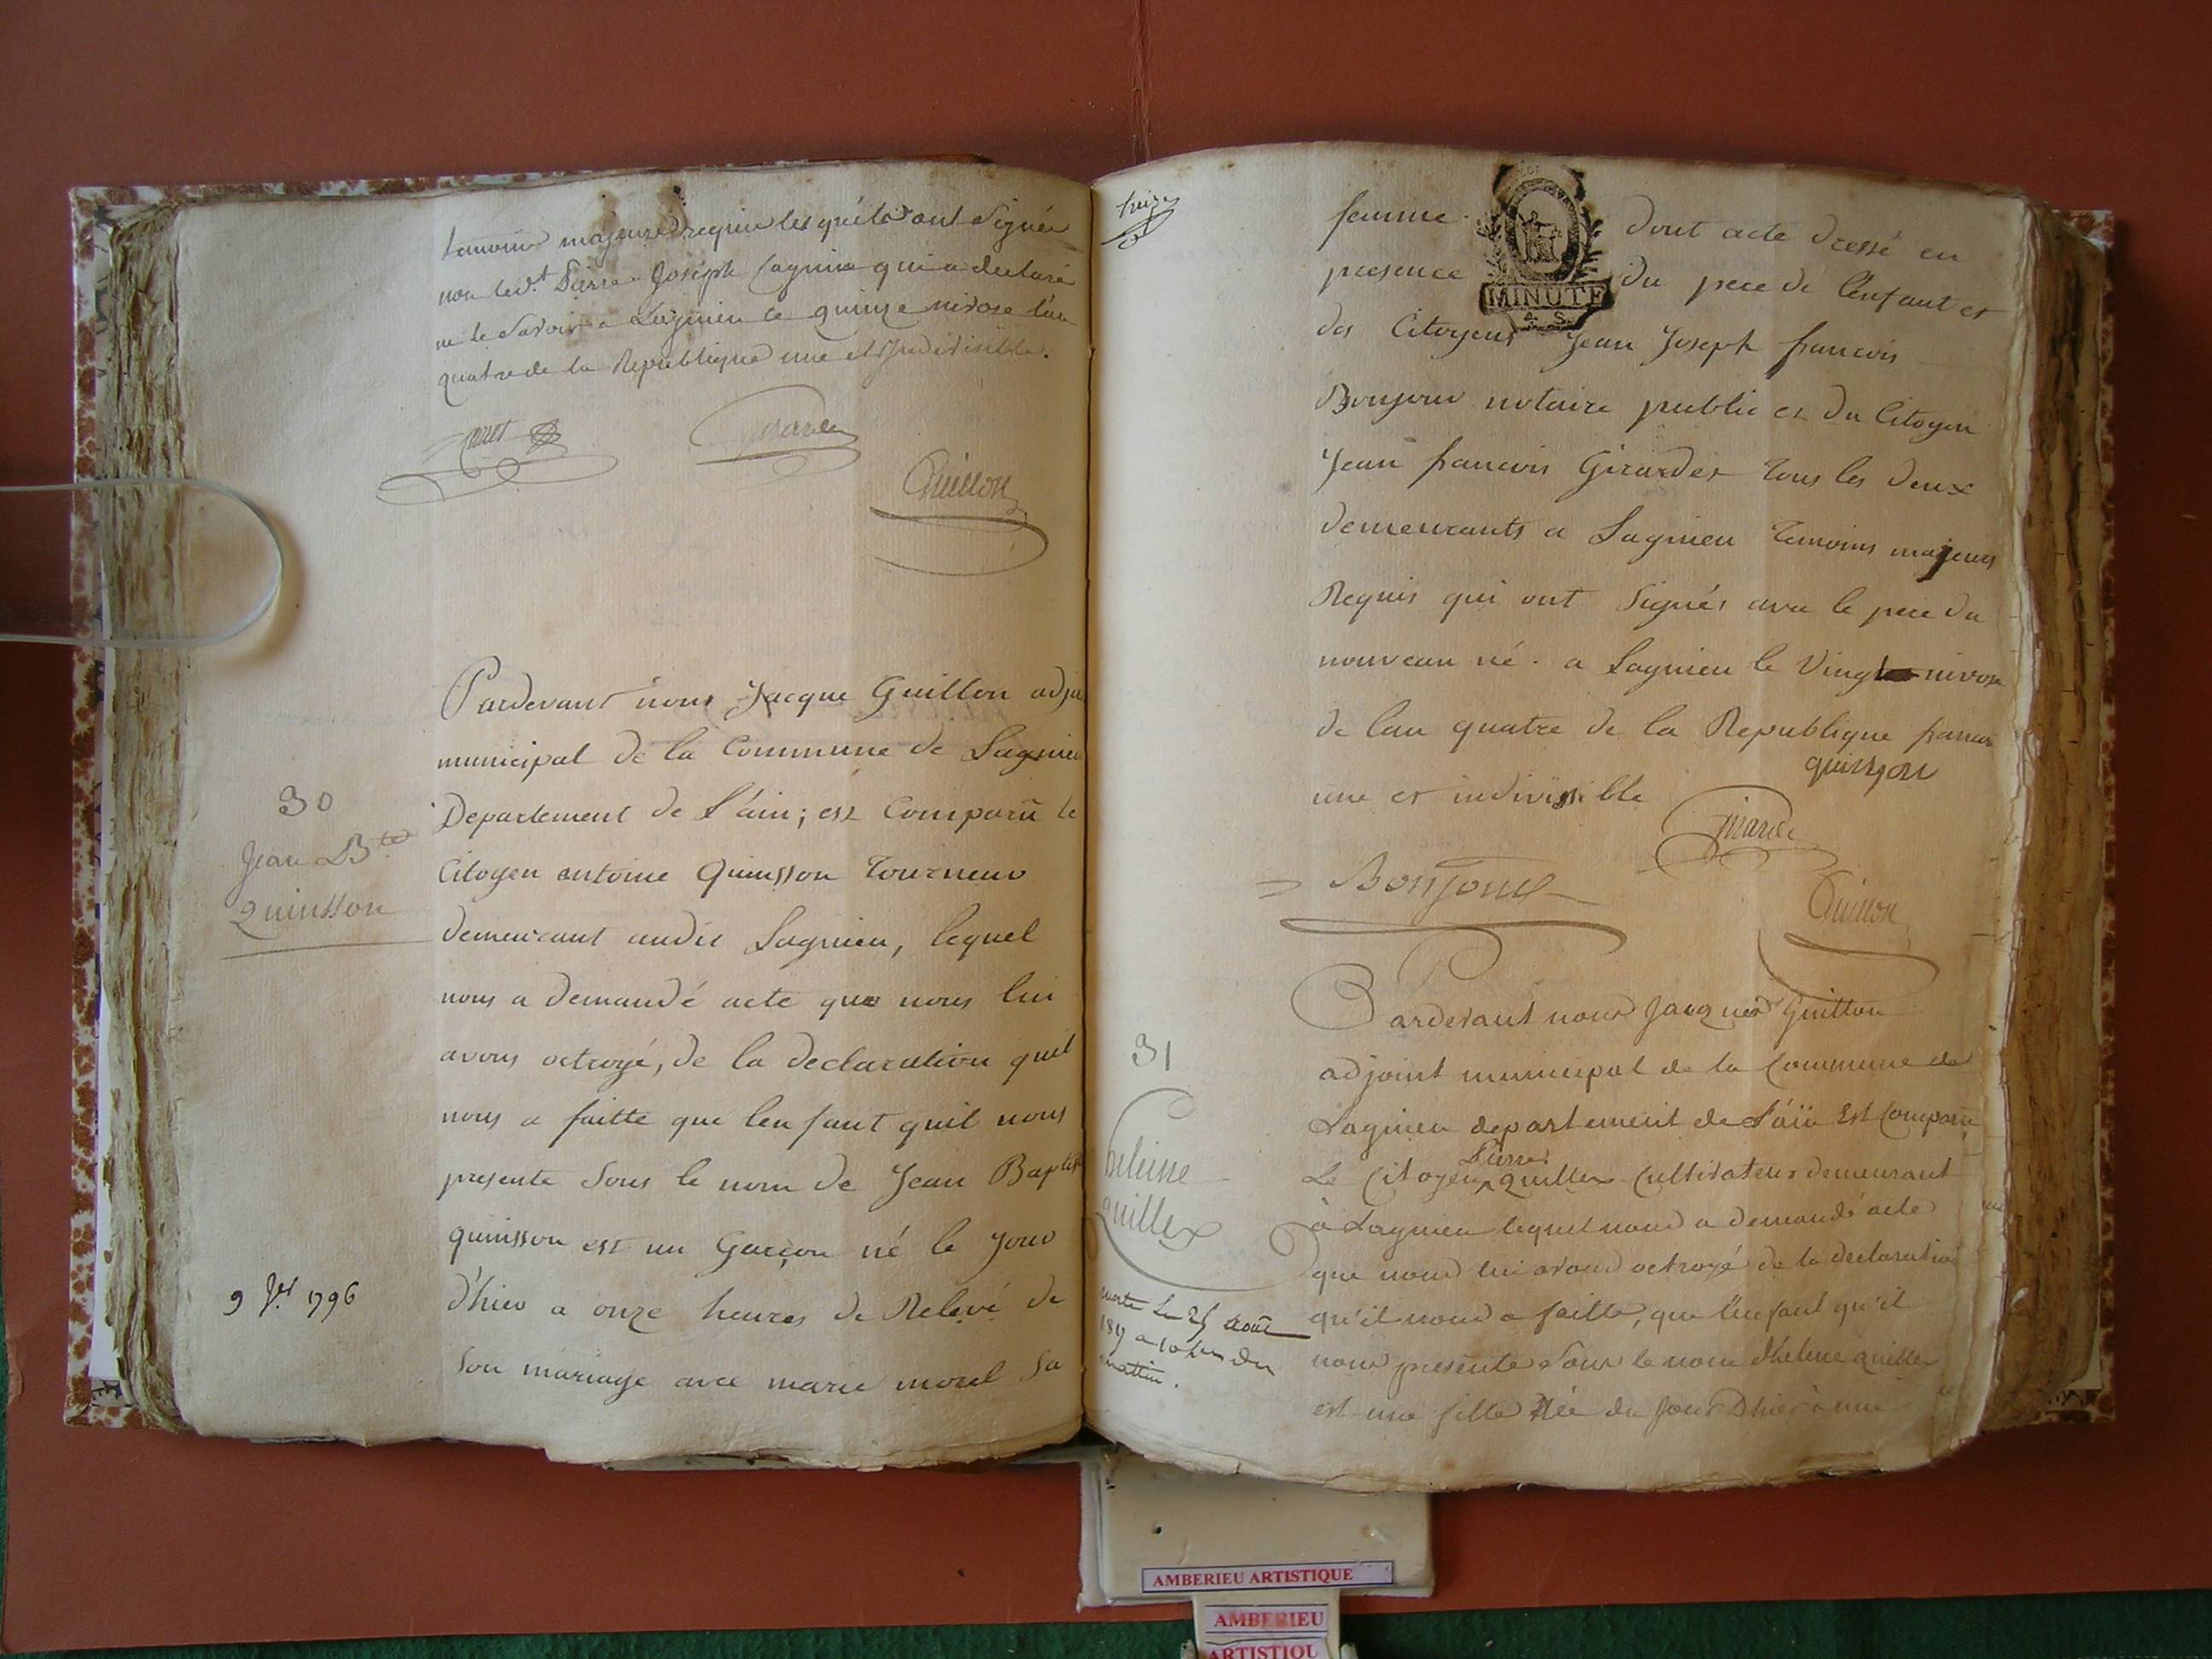 temoins majeurs requis lesquels ont Signés
non led.t Pierre Joseph Cagnin qui a declaré
ne le Savoir a Lagnieu le quinze nivose l'an
quatre de la Republique une et Indivisible.
Guillon
Pardevant nous Jacque Guillon adjoi
municipal de la Commune de Lagnieu
Departement de L'ain; est Comparu le
Citoyen antoine Quinsson Tourneur
demeurant audit Lagnieu, lequel
nous a demandé acte que nous lui
avons octroyé, de la declaration quil
nous a faitte que lenfant quil nous
presente Sous le nom de Jean Baptiste
quinsson est un Garçon né le Jour
d'hier a onze heures de Relevé de
Son mariage avec marie morel Sa
30
Jean B.te
Quinsson
9 J.er 1796
treize
femme dont acte dressé en
presence du pere de l'enfant et
MINUTE
A. S.
des Citoyens Jean Joseph francois
Bonjour notaire public et du Citoyen
Jean francois Girardet Tous les deux
demeurants a Lagnieu Temoins majeurs
Requis qui ont Signés avec le pere du
nouveau né. a Lagnieu le Vingt nivose
de lan quatre de la Republique francai
une et indivisible
quinson
Bonjour
Guillon
Pardevant nous Jacques Guillon
adjoint municipal de la Commune de
Lagnieu departement de L'ain Est Comparu
Le Citoyen ^ Pierre quiller Cultivateur demeurant
à Lagnieu lequel nous a demandé acte
que nous lui avons octroyé de la declaration
qu'il nous a faitte, que l'enfant qu'il
nous presente Sous le nom d'helene quiller
est une fille Née du Jour D'hier à une
31
heleine
quiller
morte Le 25 Août
a 10 hres du
mattin.
AMBERIEU ARTISTIQUE
AMBERIEU
ARTISTIQU